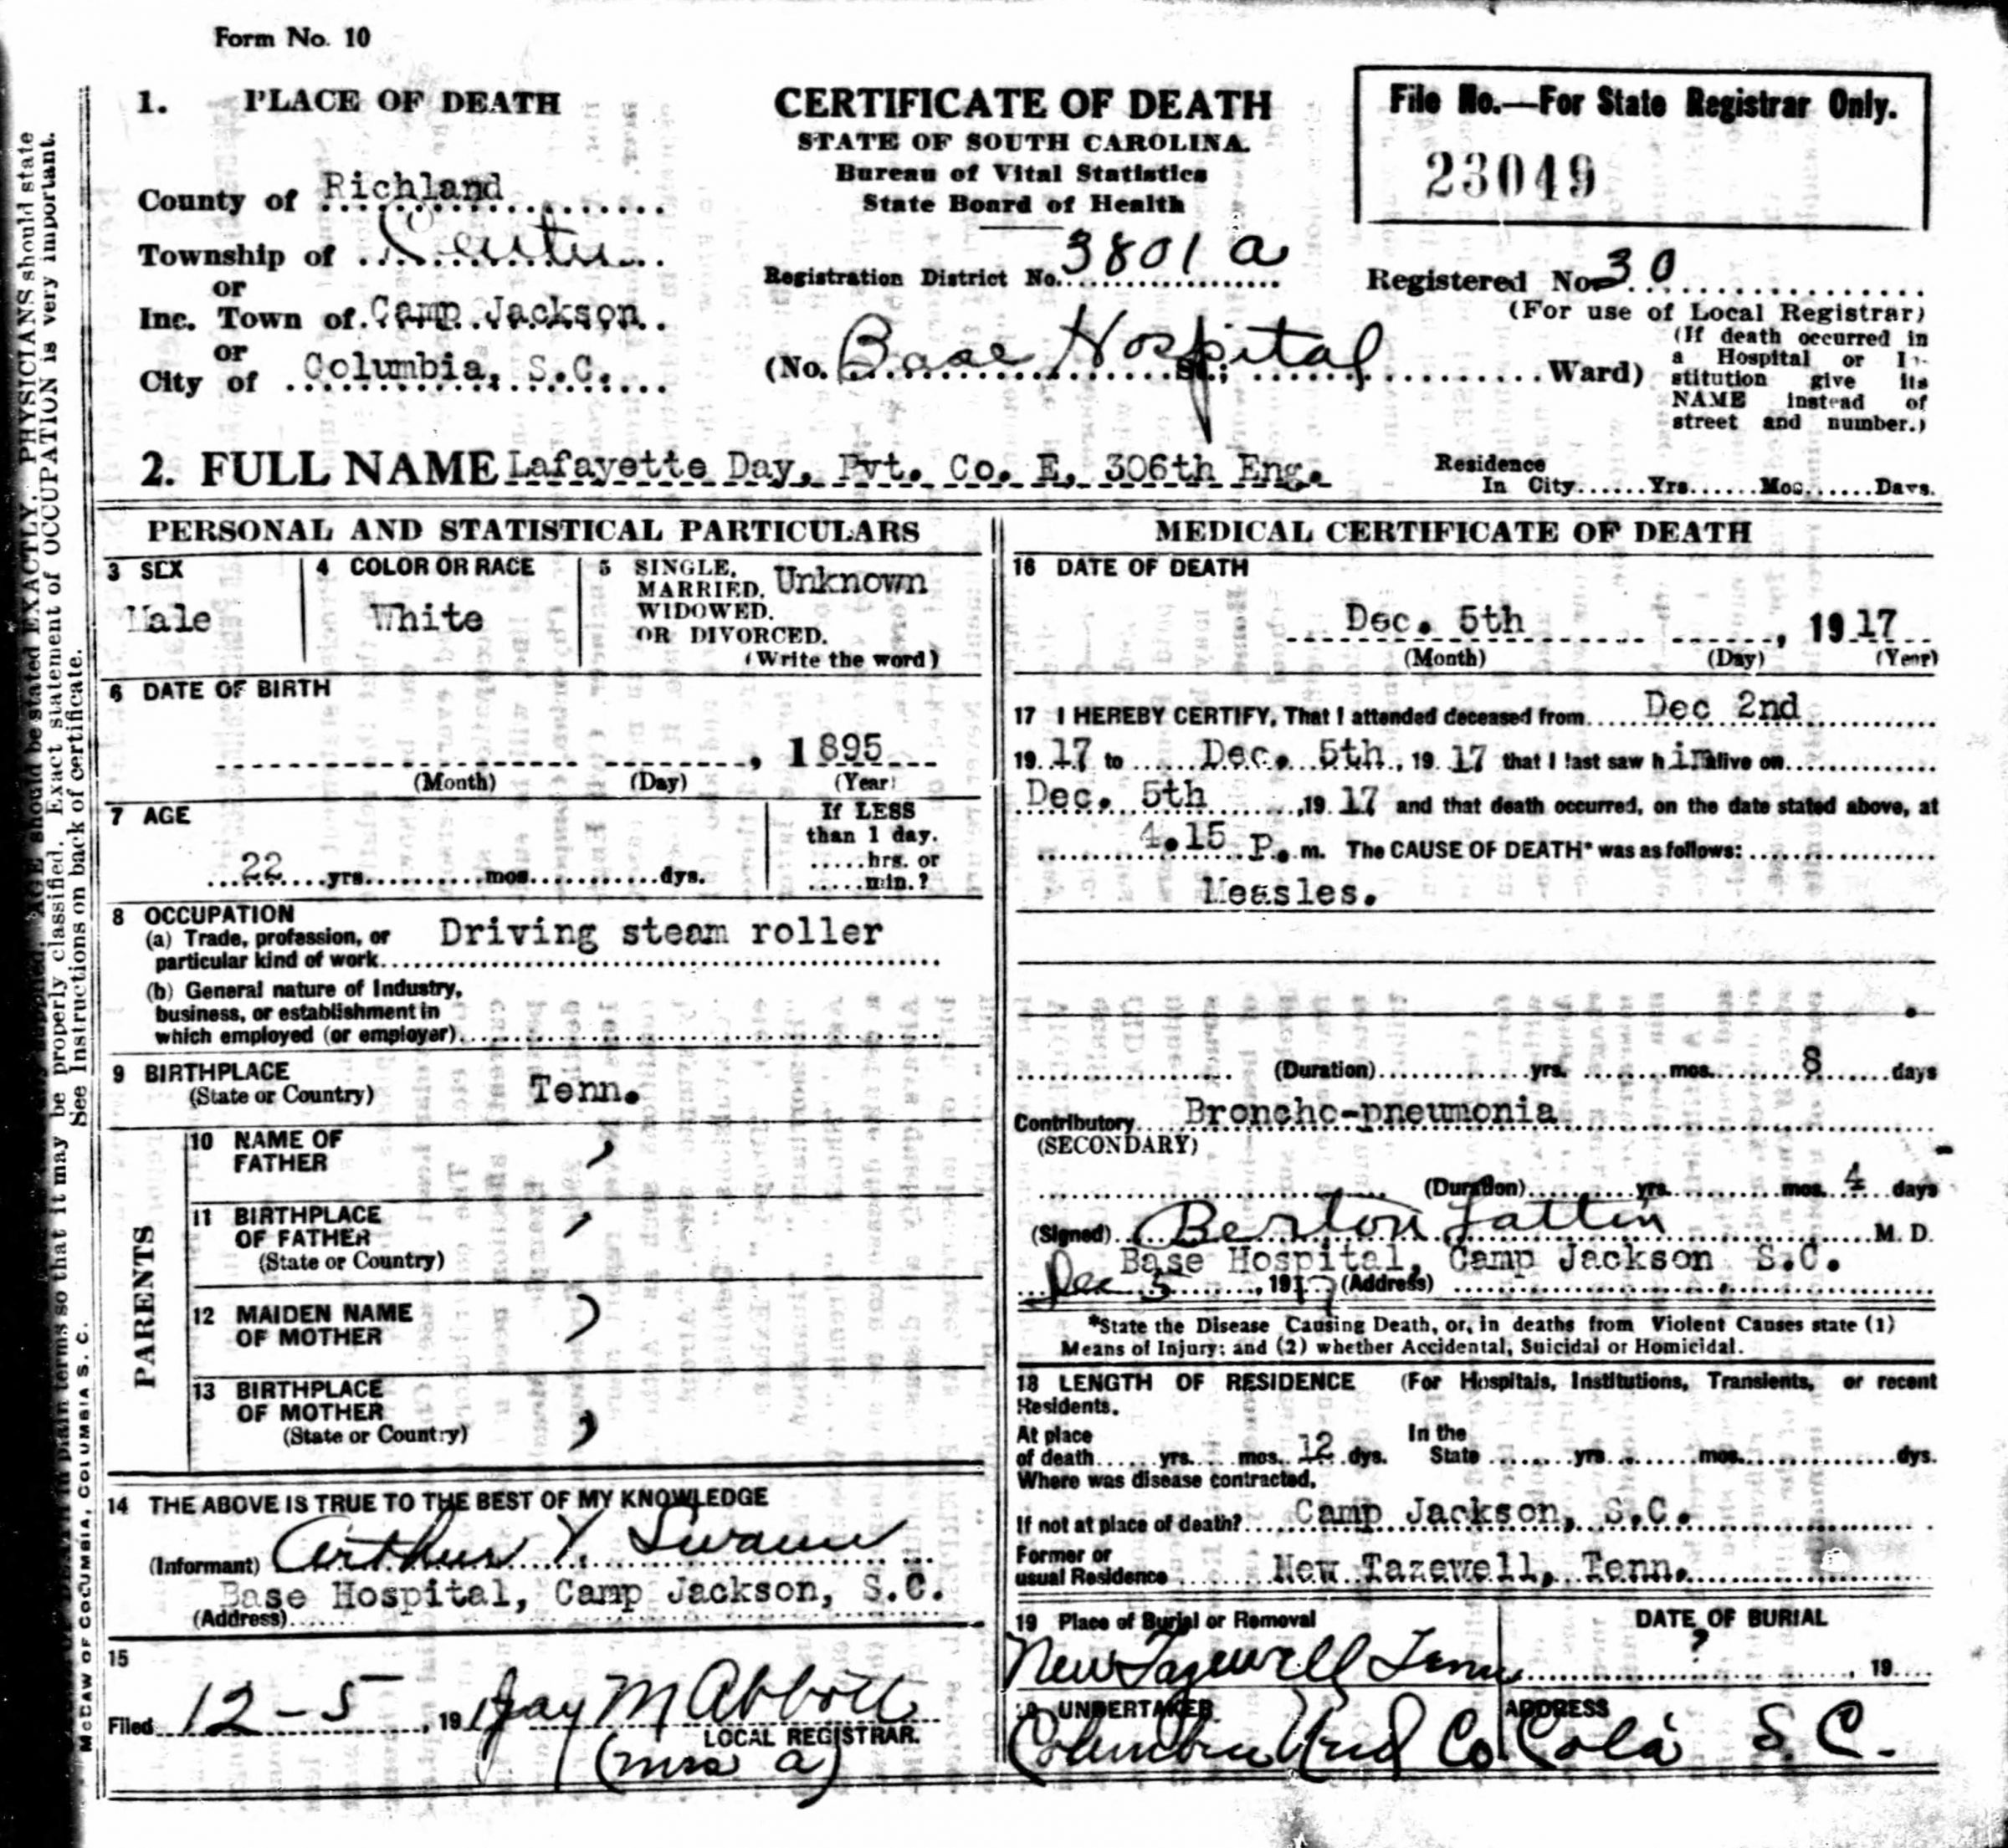 Form No. 10
1. PLACE OF DEATH
County of Richland
Township of
or
Inc. Town of Camp Jackson
or
City of Columbia, S.C.
CERTIFICATE OF DEATH
STATE OF SOUTH CAROLINA.
Bureau of Vital Statistics
State Board of Health
Registration District No. 3801 a
(No. Base Hospital St.; Ward)
File No.—For State Registrar Only.
23049
Registered No. 30
(For use of Local Registrar)
(If death occurred in
a Hospital or In-
stitution give its
NAME instead of
street and number.)
2. FULL NAME Lafayette Day, Pvt. Co. E, 306th Eng.
Residence
In City......Yrs......Mos......Days.
PERSONAL AND STATISTICAL PARTICULARS
3 SEX
Male
4 COLOR OR RACE
White
5 SINGLE,
MARRIED,
WIDOWED.
OR DIVORCED.
(Write the word)
Unknown
6 DATE OF BIRTH
, 1895
(Month) (Day) (Year)
7 AGE
22 yrs. mos. dys.
If LESS
than 1 day.
.....hrs. or
.....min.?
8 OCCUPATION
(a) Trade, profession, or
particular kind of work
Driving steam roller
(b) General nature of Industry,
business, or establishment in
which employed (or employer)
9 BIRTHPLACE
(State or Country)
Tenn.
PARENTS
10 NAME OF
FATHER
11 BIRTHPLACE
OF FATHER
(State or Country)
12 MAIDEN NAME
OF MOTHER
13 BIRTHPLACE
OF MOTHER
(State or Country)
14 THE ABOVE IS TRUE TO THE BEST OF MY KNOWLEDGE
(Informant) Arthur Y. Swann
Base Hospital, Camp Jackson, S.C.
(Address)
15
Filed 12-5, 191 Jay M Abbott
LOCAL REGISTRAR.
(mrs a)
MEDICAL CERTIFICATE OF DEATH
16 DATE OF DEATH
Dec. 5th , 1917
(Month) (Day) (Year)
17 I HEREBY CERTIFY, That I attended deceased from Dec 2nd
19 17 to Dec. 5th, 19 17 that I last saw h im alive on
Dec. 5th ,19 17 and that death occurred, on the date stated above, at
4.15 P. m. The CAUSE OF DEATH* was as follows:
Measles.
(Duration) yrs. mos. 8 days
Contributory Broncho-pneumonia
(SECONDARY)
(Duration) yrs. mos. 4 days
(Signed) Berton Lattin M. D.
Base Hospital, Camp Jackson S.C.
Dec 5, 1917 (Address)
*State the Disease Causing Death, or, in deaths from Violent Causes state (1)
Means of Injury; and (2) whether Accidental, Suicidal or Homicidal.
18 LENGTH OF RESIDENCE (For Hospitals, Institutions, Transients, or recent
Residents.
At place In the
of death yrs. mos. 12 dys. State yrs. mos. dys.
Where was disease contracted,
If not at place of death? Camp Jackson, S.C.
Former or
usual Residence New Tazewell, Tenn.
19 Place of Burial or Removal
New Tazewell Tenn
DATE OF BURIAL
?
, 19
UNDERTAKER
Columbia Und Co
ADDRESS
Cola S. C.
PHYSICIANS should state
AGE should be stated EXACTLY.
be properly classified. Exact statement of OCCUPATION is very important.
in plain terms so that it may
See Instructions on back of certificate.
McCAW OF COLUMBIA, COLUMBIA S. C.